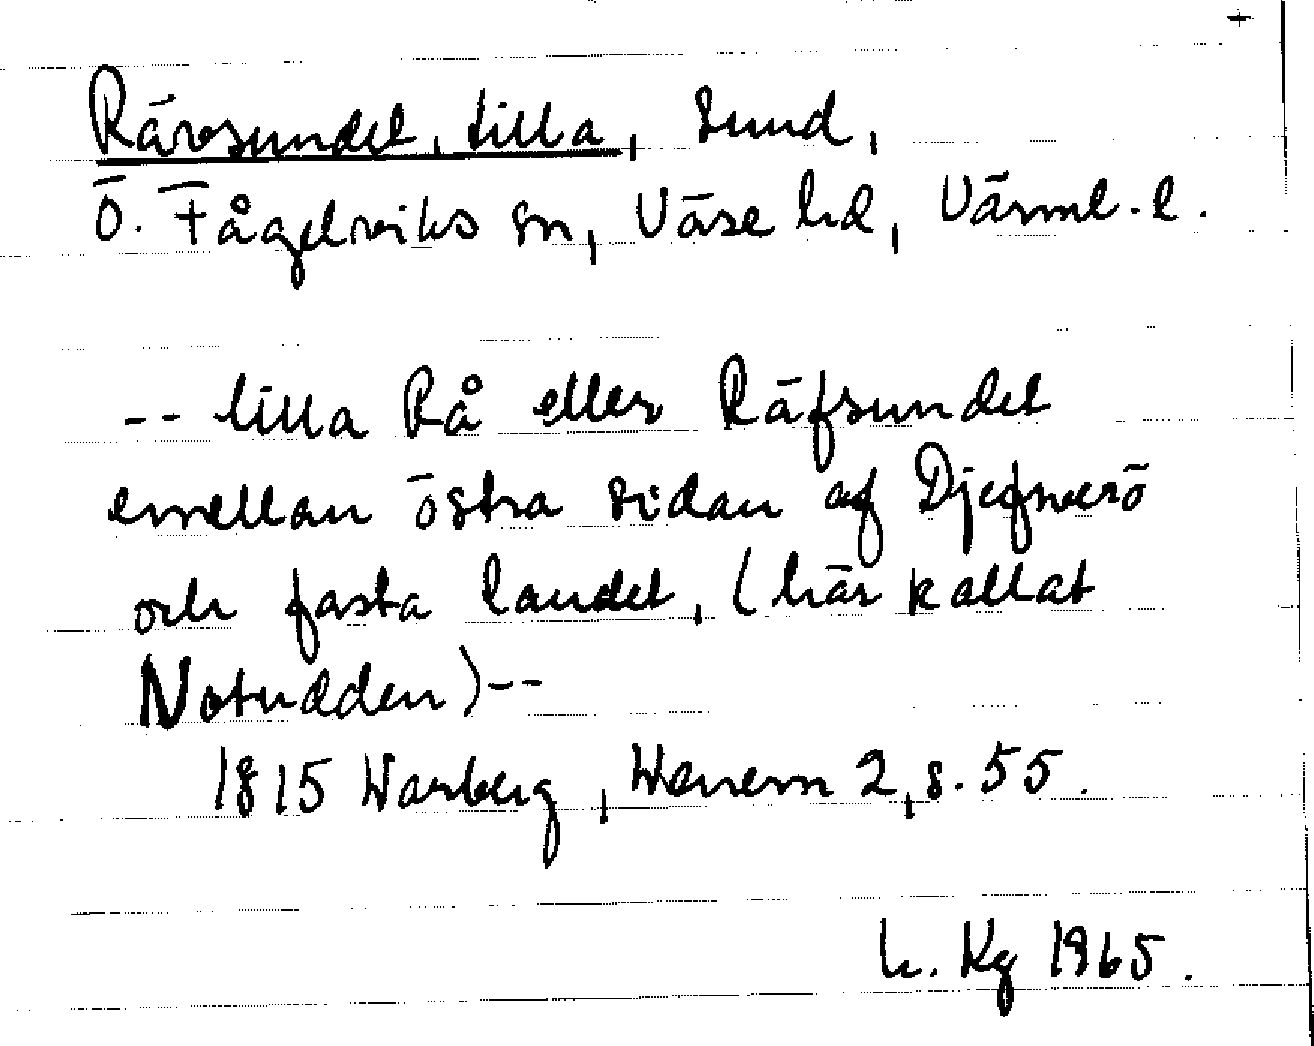 +
Rävsundet, Lilla, Sund,
Ö. Fågelviks sn, Väse hd, Värml. l.
-- lilla Rå eller Räfsundet
emellan östra sidan af Djefverö
och fasta landet, (här kallat
Notudden)--
1815 Warberg, Wenern 2, s. 55.
L. Kg 1965.